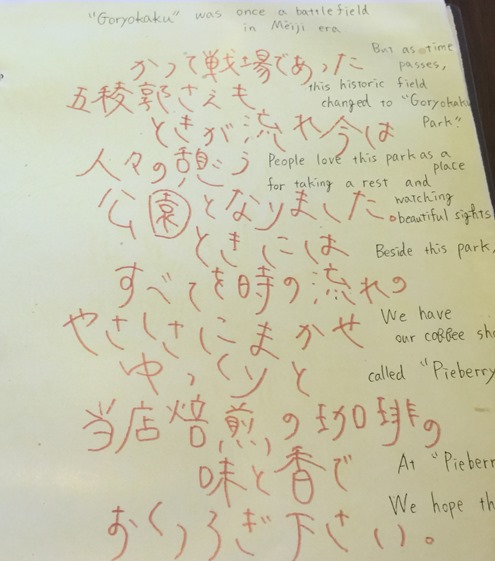 "Goryokaku" was once a battlefield
in Meiji era
かつて戦場であった
But as time
passes,
五稜郭さえも
this historic field
changed to "Goryokaku
Park".
ときが流れ今は
人々の憩う
People love this park as a
place
for taking a rest and
watching
beautiful sights
公園となりました。
ときには
Beside this park,
すべてを時の流れの
やさしさにまかせ
We have
our coffee sho
ゆっくりと
called "Pieberry
当店焙煎の珈琲の
味と香で
At "Pieberr
We hope th
おくつろぎ下さい。